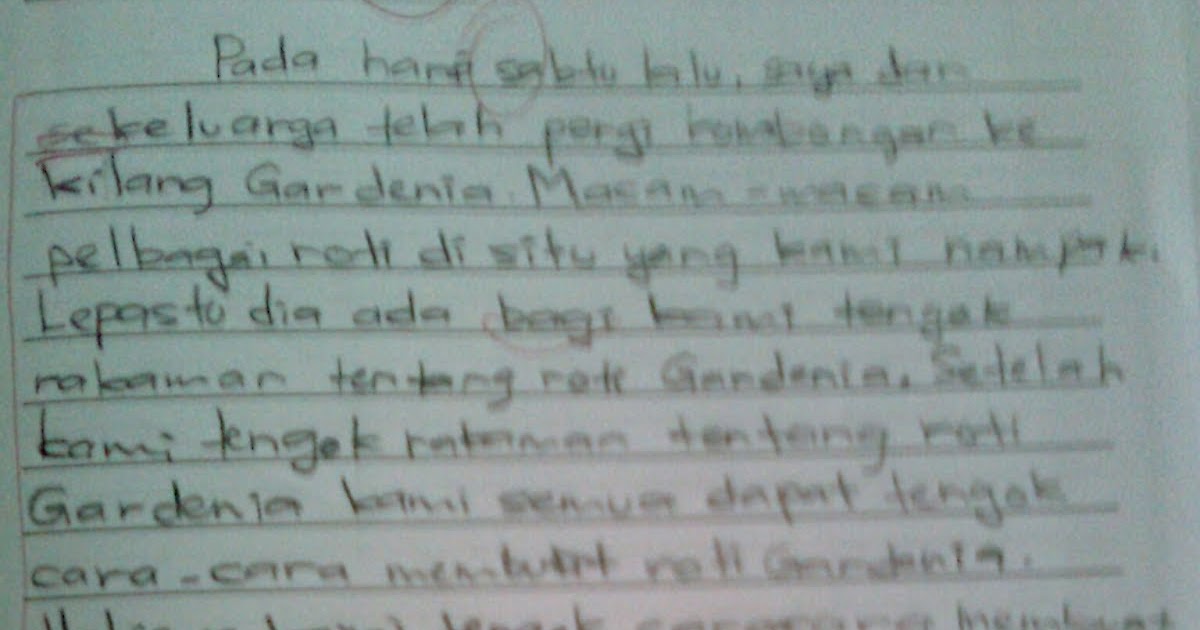 Pada hari sabtu lalu, saya dan
sekeluarga telah pergi rombongan ke
kilang Gardenia. Macam-macam
pelbagai roti di situ yang kami nampak.
Lepastu dia ada bagi kami tengok
rakaman tentang roti Gardenia. Setelah
kami tengok rakaman tentang roti
Gardenia kami semua dapat tengok
cara-cara membuat roti Gardenia.
kami tengok membuat